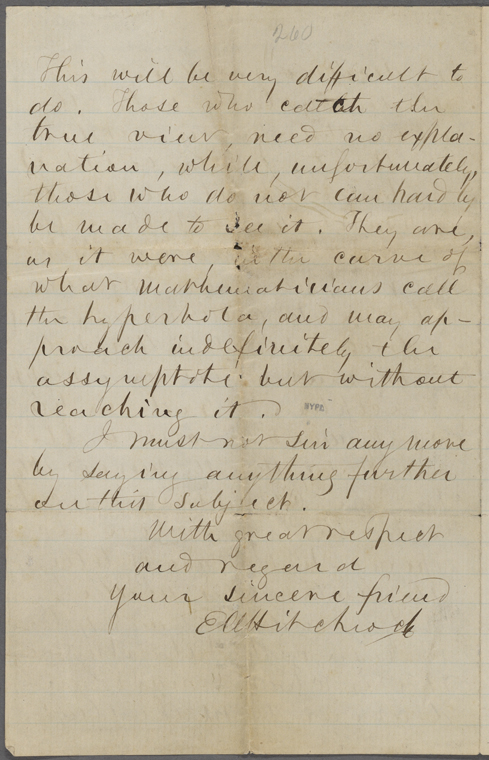 260
This will be very difficult to
do. Those who catch the
true view, need no expla-
nation, while, unfortunately,
those who do not can hardly
be made to see it. They are,
as it were, in the curve of
what mathematicians call
the hyperbola, and may ap-
proach indefinitely the
assymptote but without
reaching it.
NYPL
I must not sin any more
by saying anything further
on this subject.
With great respect
and regard
Your sincere friend
EAHitchcock